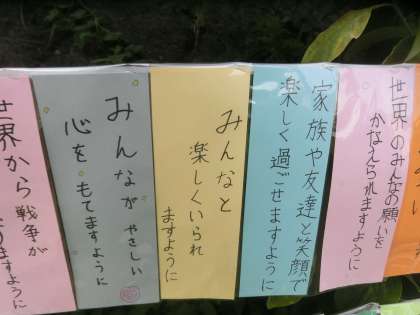 世界から戦争が
りますように
みんなが やさしい
心を もてますように
みんなと
楽しくいられ
ますように
家族や友達と笑顔で
楽しく過ごせますように
世界のみんなの願いを
かなえられますように